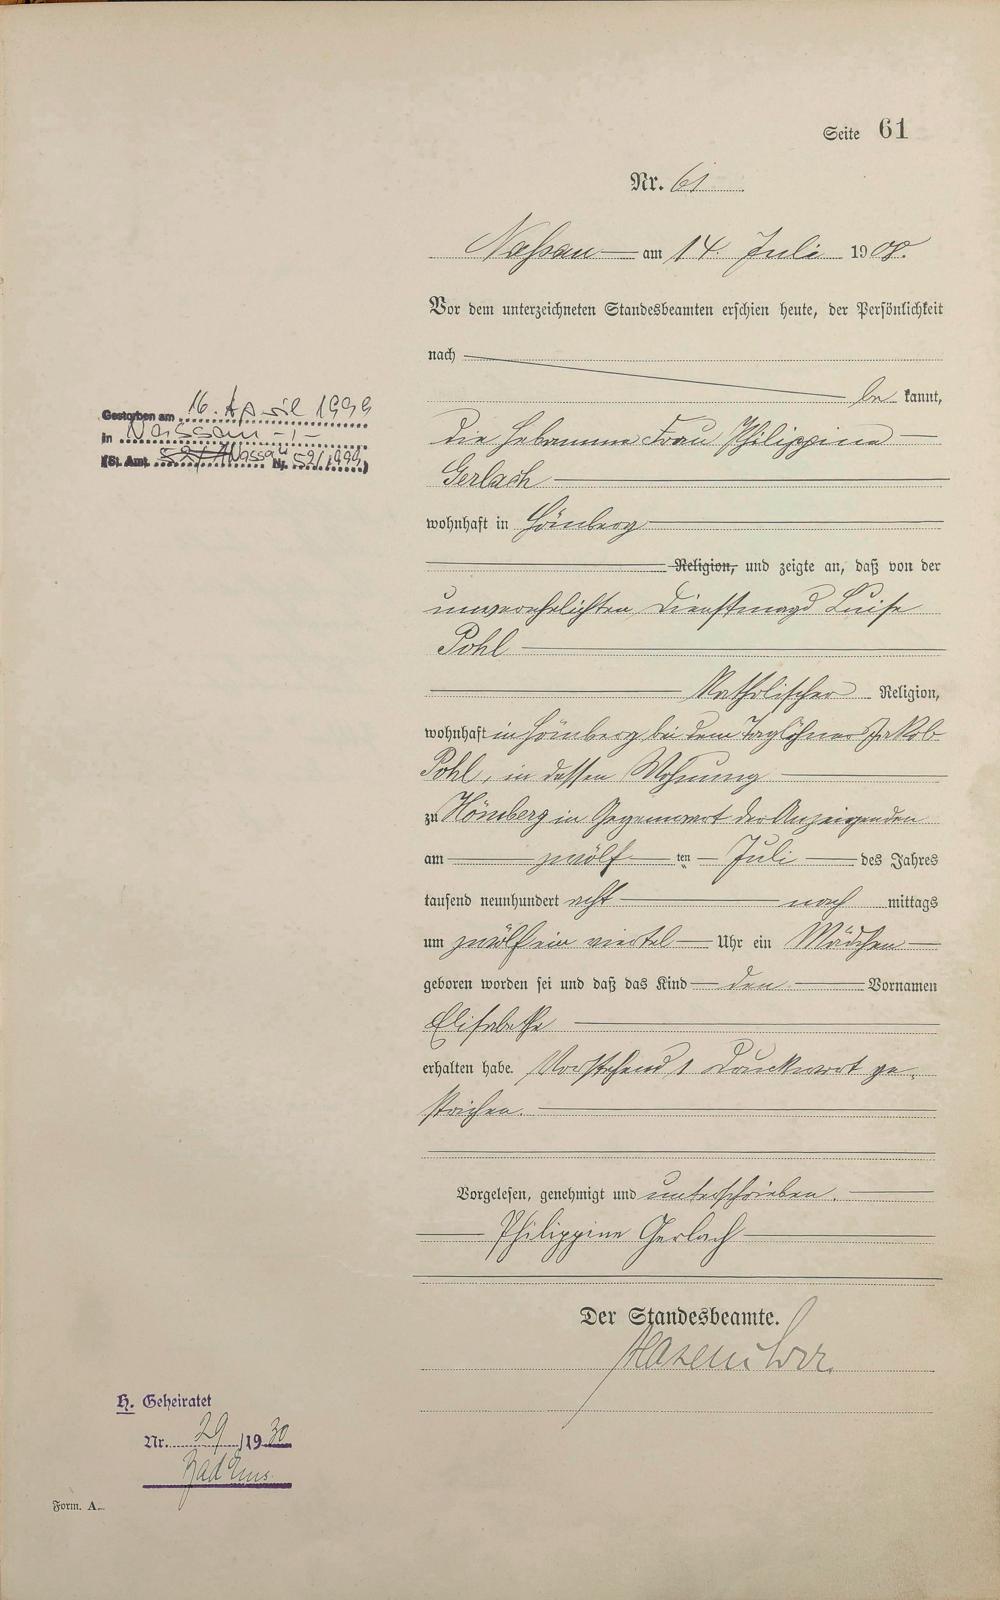 Seite 61
Nr. 61
Nassau am 14. Juli 1908.
Vor dem unterzeichneten Standesbeamten erschien heute, der Persönlichkeit
nach
be kannt,
die Hebamme Frau Philippine
Gerlach
wohnhaft in Hömberg
Religion, und zeigte an, daß von der
unverehelichten Dienstmagd Luise
Pohl
katholischer Religion,
wohnhaft in Hömberg bei dem Taglöhner Jakob
Pohl, in dessen Wohnung
zu Hömberg in Gegenwart der Anzeigenden
am zwölf ten Juli des Jahres
tausend neunhundert acht nach mittags
um zwölf ein viertel Uhr ein Mädchen
geboren worden sei und daß das Kind den Vornamen
Elisabetha
erhalten habe. Vorstehend 1 Druckwort ge-
strichen.
Vorgelesen, genehmigt und unterschrieben.
Philippine Gerlach
Der Standesbeamte.
Gestorben am 16. April 1999
in Nassau -/-
(St. Amt Nassau Nr. 52/1999)
H. Geheiratet
Nr. 29/1930
Bad Ems
Form. A.